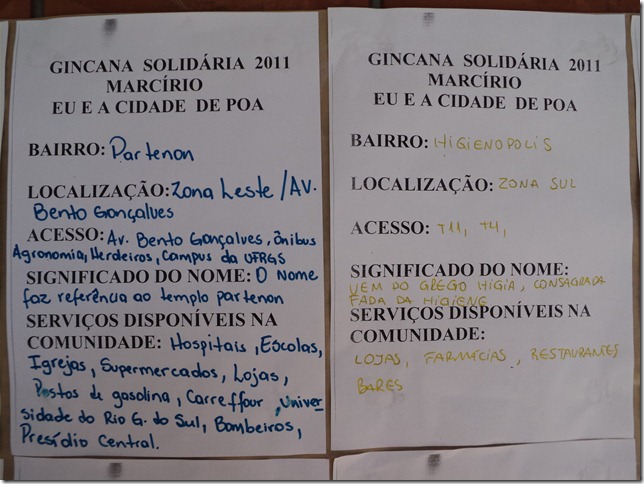 GINCANA SOLIDÁRIA 2011
MARCÍRIO
EU E A CIDADE DE POA
BAIRRO: Partenon
LOCALIZAÇÃO: Zona Leste / Av.
Bento Gonçalves
ACESSO: Av. Bento Gonçalves, ônibus
Agronomia, Herdeiros, Campus da UFRGS
SIGNIFICADO DO NOME: O Nome
faz referência ao templo partenon
SERVIÇOS DISPONÍVEIS NA
COMUNIDADE: Hospitais, Escolas,
Igrejas, Supermercados, Lojas,
Postos de gasolina, Carreffour, Univer
sidade do Rio G. do Sul, Bombeiros,
Presídio Central.
GINCANA SOLIDÁRIA 2011
MARCÍRIO
EU E A CIDADE DE POA
BAIRRO: HIGIENOPOLIS
LOCALIZAÇÃO: ZONA SUL
ACESSO: T11, T4,
SIGNIFICADO DO NOME:
VEM DO GREGO HIGIA, CONSAGRADA
FADA DA HIGIENE
SERVIÇOS DISPONÍVEIS NA
COMUNIDADE:
LOJAS, FARMÁCIAS, RESTAURANTES
BARES